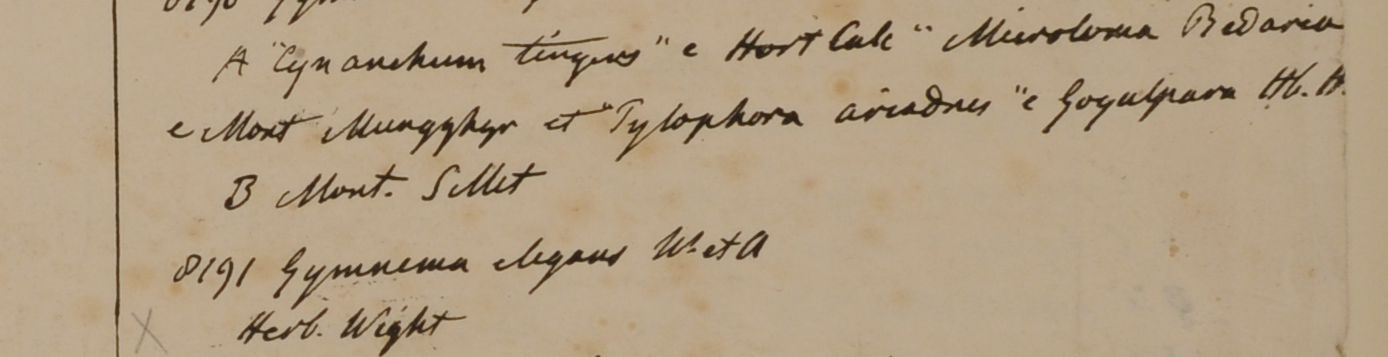 A "Cynanchum tingens" e Hort Calc "Microloma Bedaria
e Mont Mungghyr et "Tylophora ariadnes" e Goyalpara Hb. H.
B Mont. Sillet
8191 Gymnema elegans W. et A
Herb. Wight